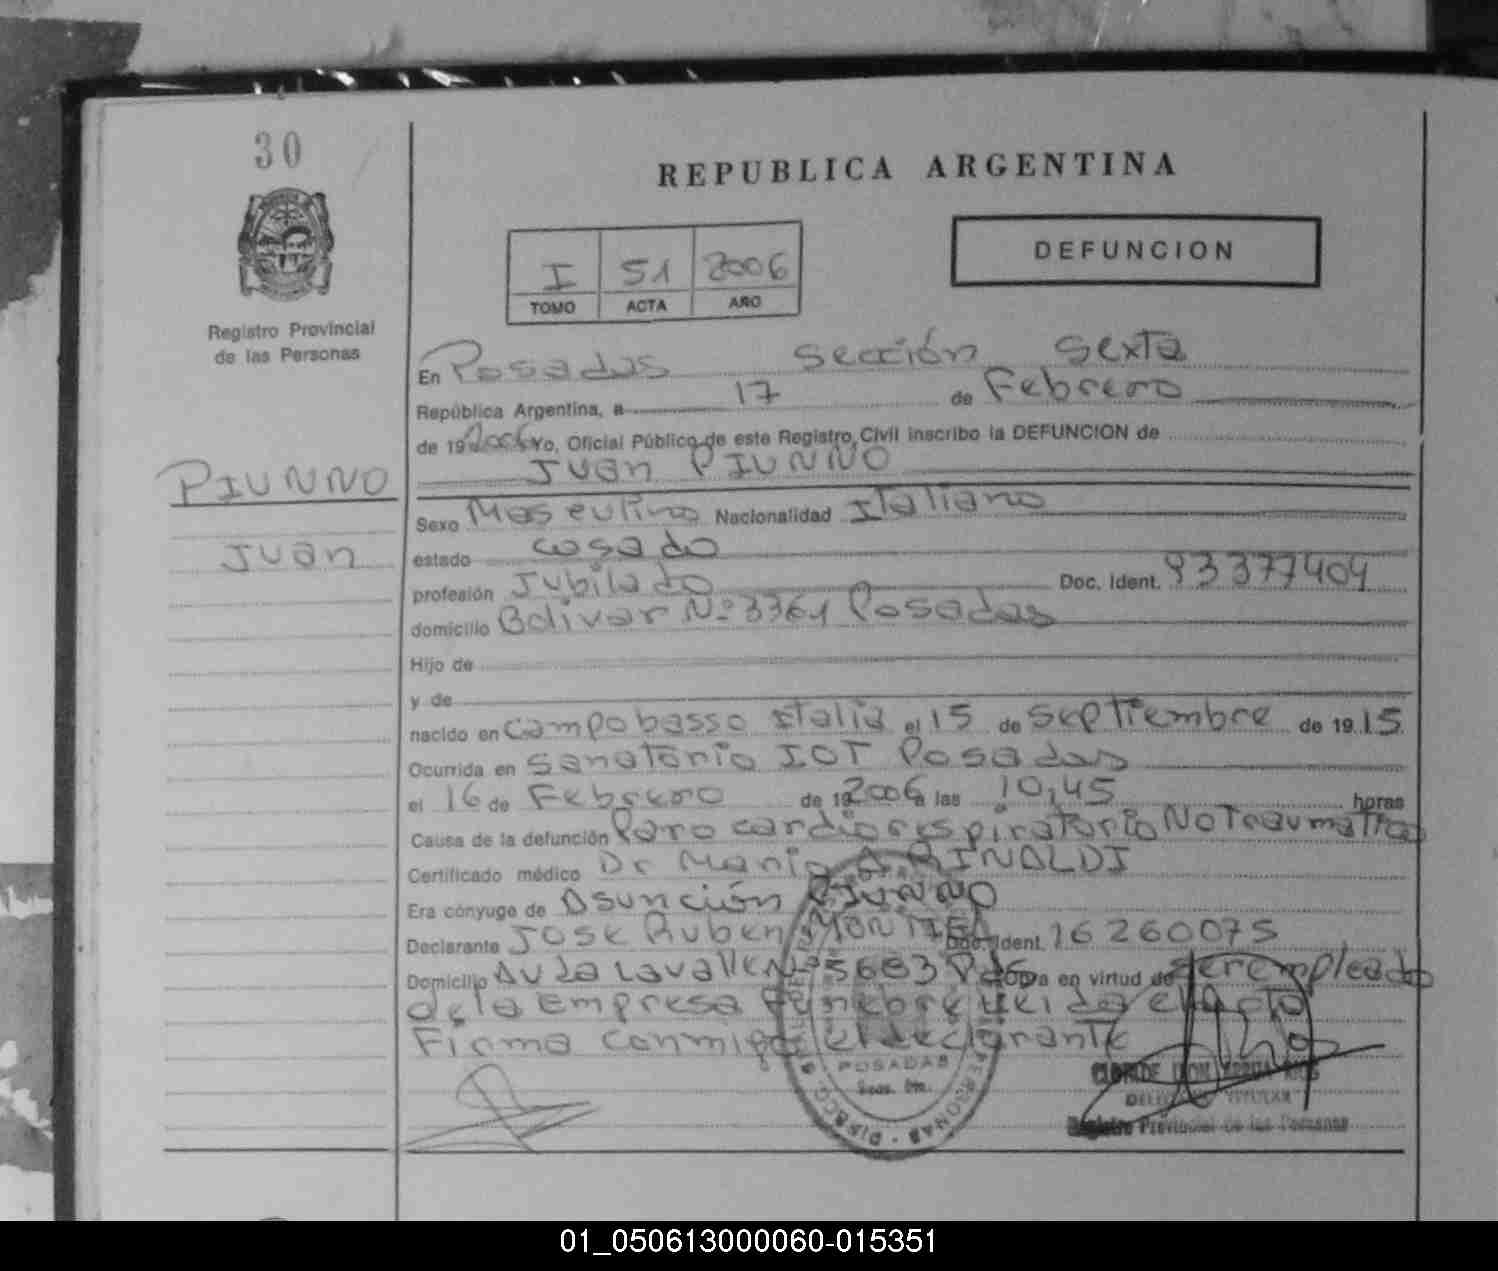 30
REPUBLICA ARGENTINA
I 51 2006
TOMO ACTA AÑO
DEFUNCION
Registro Provincial
de las Personas
En Posadas Sección Sexta
República Argentina, a 17 de Febrero
de 19 2006 Yo, Oficial Público de este Registro Civil inscribo la DEFUNCION de
Juan PIUNNO
PIUNNO
Juan
Sexo Masculino Nacionalidad Italiano
estado casado
profesión Jubilado Doc. Ident. 93377409
domicilio Bolivar Nº 3361 Posadas
Hijo de
y de
nacido en Campobasso Italia el 15 de Septiembre de 19 15
Ocurrida en Sanatorio IOT Posadas
el 16 de Febrero de 19 2006 a las 10,45 horas
Causa de la defunción Paro cardiorespiratorio No Traumatico
Certificado médico Dr Mario A RINALDI
Era cónyuge de Asunción PIUNNO
Declarante JOSE Ruben MONTIEL Doc. Ident. 16260075
Domicilio Av da Lavalle Nº 5683 Pdas Obra en virtud de ser empleado
de la Empresa Fúnebre Leida el Acta
Firma conmigo el declarante
POSADAS
DELEGADA TITULAR
Registro Provincial de las Personas
01_050613000060-015351